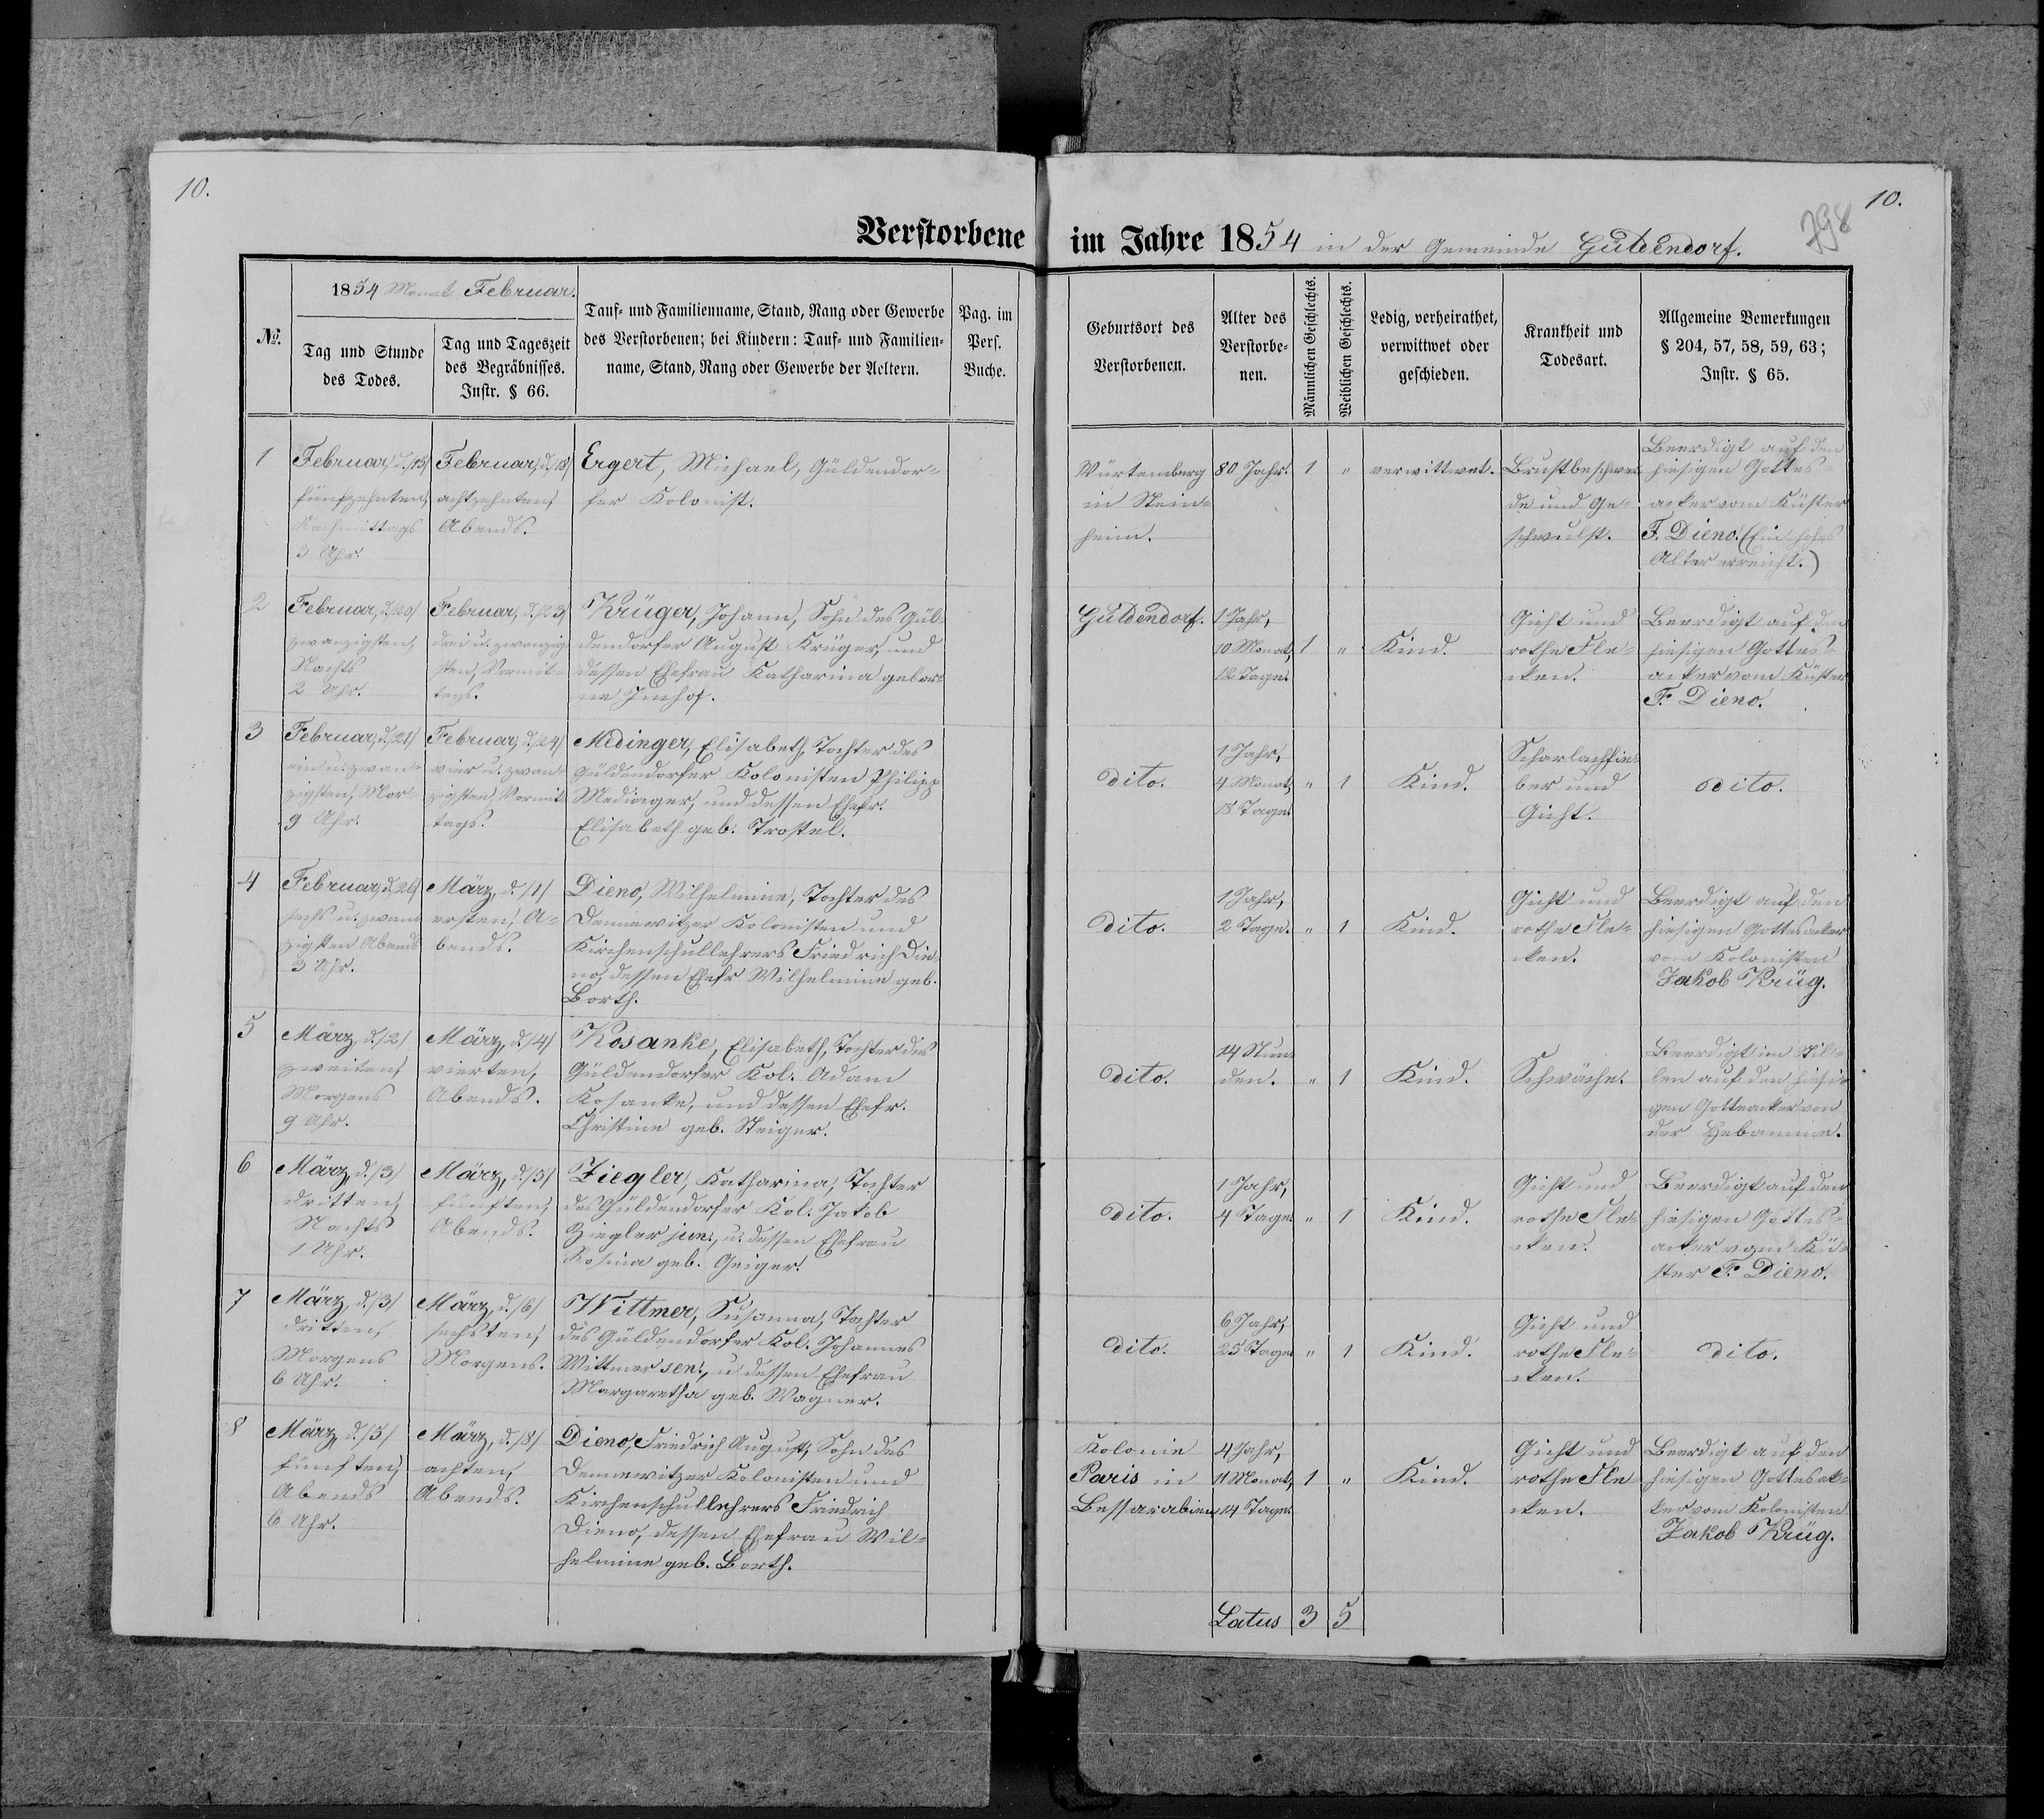 10.
10.
798
Verstorbene im Jahre 1854 in der Gemeinde Güldendorf.
№.
1854 Monat Februar.
Tag und Stunde
des Todes.
Tag und Tageszeit
des Begräbnisses.
Instr. § 66.
Tauf- und Familienname, Stand, Rang oder Gewerbe
des Verstorbenen; bei Kindern: Tauf- und Familien-
name, Stand, Rang oder Gewerbe der Aeltern.
Pag. im
Pers.
Buche.
Geburtsort des
Verstorbenen.
Alter des
Verstorbe-
nen.
Männlichen Geschlechts.
Weiblichen Geschlechts.
Ledig, verheirathet,
verwittwet oder
geschieden.
Krankheit und
Todesart.
Allgemeine Bemerkungen
§ 204, 57, 58, 59, 63;
Instr. § 65.
1
Februar, d. /15/
fünfzehnten,
Nachmittags
3 Uhr.
Februar, d. /18/
achtzehnten,
Abends.
Ergert, Michael, Güldendor-
fer Kolonist.
Würtemberg
in Stein-
heim.
80 Jahr.
1
"
verwittwet.
Brustbeschwer
de und Ge-
schwulst.
Beerdigt auf den
hiesigen Gottes
acker vom Küster
F. Dieno. (Ein hohes
Alter erreicht.)
2
Februar, d. /20/
zwanzigsten,
Nachts
2 Uhr.
Februar, d. /23/
drei u. zwanzig-
sten, Vormit-
tags.
Krüger, Johann, Sohn des Gül-
dendorfer August Krüger, und
dessen Ehefrau Katharina gebor-
ne Imhof.
Güldendorf.
1 Jahr,
10 Monat,
12 Tage.
1
"
Kind.
Gicht und
rothe Fle-
cken.
Beerdigt auf den
hiesigen Gottes-
acker vom Küster
F. Dieno.
3
Februar, d. /21/
ein u. zwan-
zigsten, Mor-
9 Uhr.
Februar, d. /24/
vier u. zwan-
zigsten, Vormit
tags.
Medinger, Elisabeth, Tochter des
Güldendorfer Kolonisten Philipp
Medinger, und dessen Ehefr.
Elisabeth geb. Trostel.
dito.
1 Jahr,
4 Monat,
18 Tage.
"
1
Kind.
Scharlachfie-
ber und
Gicht.
dito.
4
Februar, d. /26/
sechs u. zwan
zigsten Abends
3 Uhr.
März, d. /1/
ersten, A-
bends.
Dieno, Wilhelmine, Tochter des
Dennewitzer Kolonisten und
Kirchenschullehrers Friedrich Die-
no, dessen Ehefr Wilhelmine geb.
Borth.
dito.
1 Jahr,
2 Tage.
"
1
Kind.
Gicht und
rothe Fle-
cken.
Beerdigt auf den
hiesigen Gottesacker
vom Kolonisten
Jakob Krüg.
5
März, d. /2/
zweiten,
Morgens
9 Uhr.
März, d. /4/
vierten,
Abends.
Kosanke, Elisabeth, Tochter des
Güldendorfer Kol. Adam
Kosanke, und dessen Ehefr.
Christine geb. Steiger.
dito.
14 Stun-
den.
"
1
Kind.
Schwäche.
Beerdigt im Stil-
len auf den hiesi-
gen Gottesacker von
der Hebamme.
6
März, d. /3/
dritten,
Nachts
1 Uhr.
März, d. /5/
fünften,
Abends.
Ziegler, Katharina, Tochter
des Güldendorfer Kol. Jakob
Ziegler jun., u. dessen Ehefrau
Rosina geb. Geiger.
dito.
1 Jahr,
4 Tage.
"
1
Kind.
Gicht und
rothe Fle-
cken.
Beerdigt auf den
hiesigen Gottes-
acker vom Kü-
ster F. Dieno.
7
März, d. /3/
dritten,
Morgens
6 Uhr.
März, d. /6/
sechsten,
Morgens.
Wittmer, Susanna, Tochter
des Güldendorfer Kol. Johannes
Wittmer sen., u dessen Ehefrau
Margaretha geb. Wagner.
dito.
6 Jahr,
25 Tage
"
1
Kind.
Gicht und
rothe Fle-
cken.
dito.
8
März, d. /5/
fünften,
Abends
6 Uhr.
März, d. /8/
achten,
Abends.
Dieno, Friedrich August, Sohn des
Dennewitzer Kolonisten und
Kirchenschullehrers Friedrich
Dieno, dessen Ehefrau Wil-
helmine geb. Borth.
Kolonie
Paris in
Bessarabien
4 Jahr,
11 Monat,
14 Tage.
1
"
Kind.
Gicht und
rothe Fle
cken.
Beerdigt auf den
hiesigen Gottesak-
ker vom Kolonisten
Jakob Krüg.
Latus 3 5